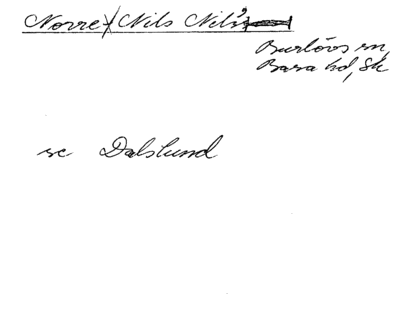 Norre/Nils Nils's
Burlövs sn,
Bara hd, Sk
se Dalslund